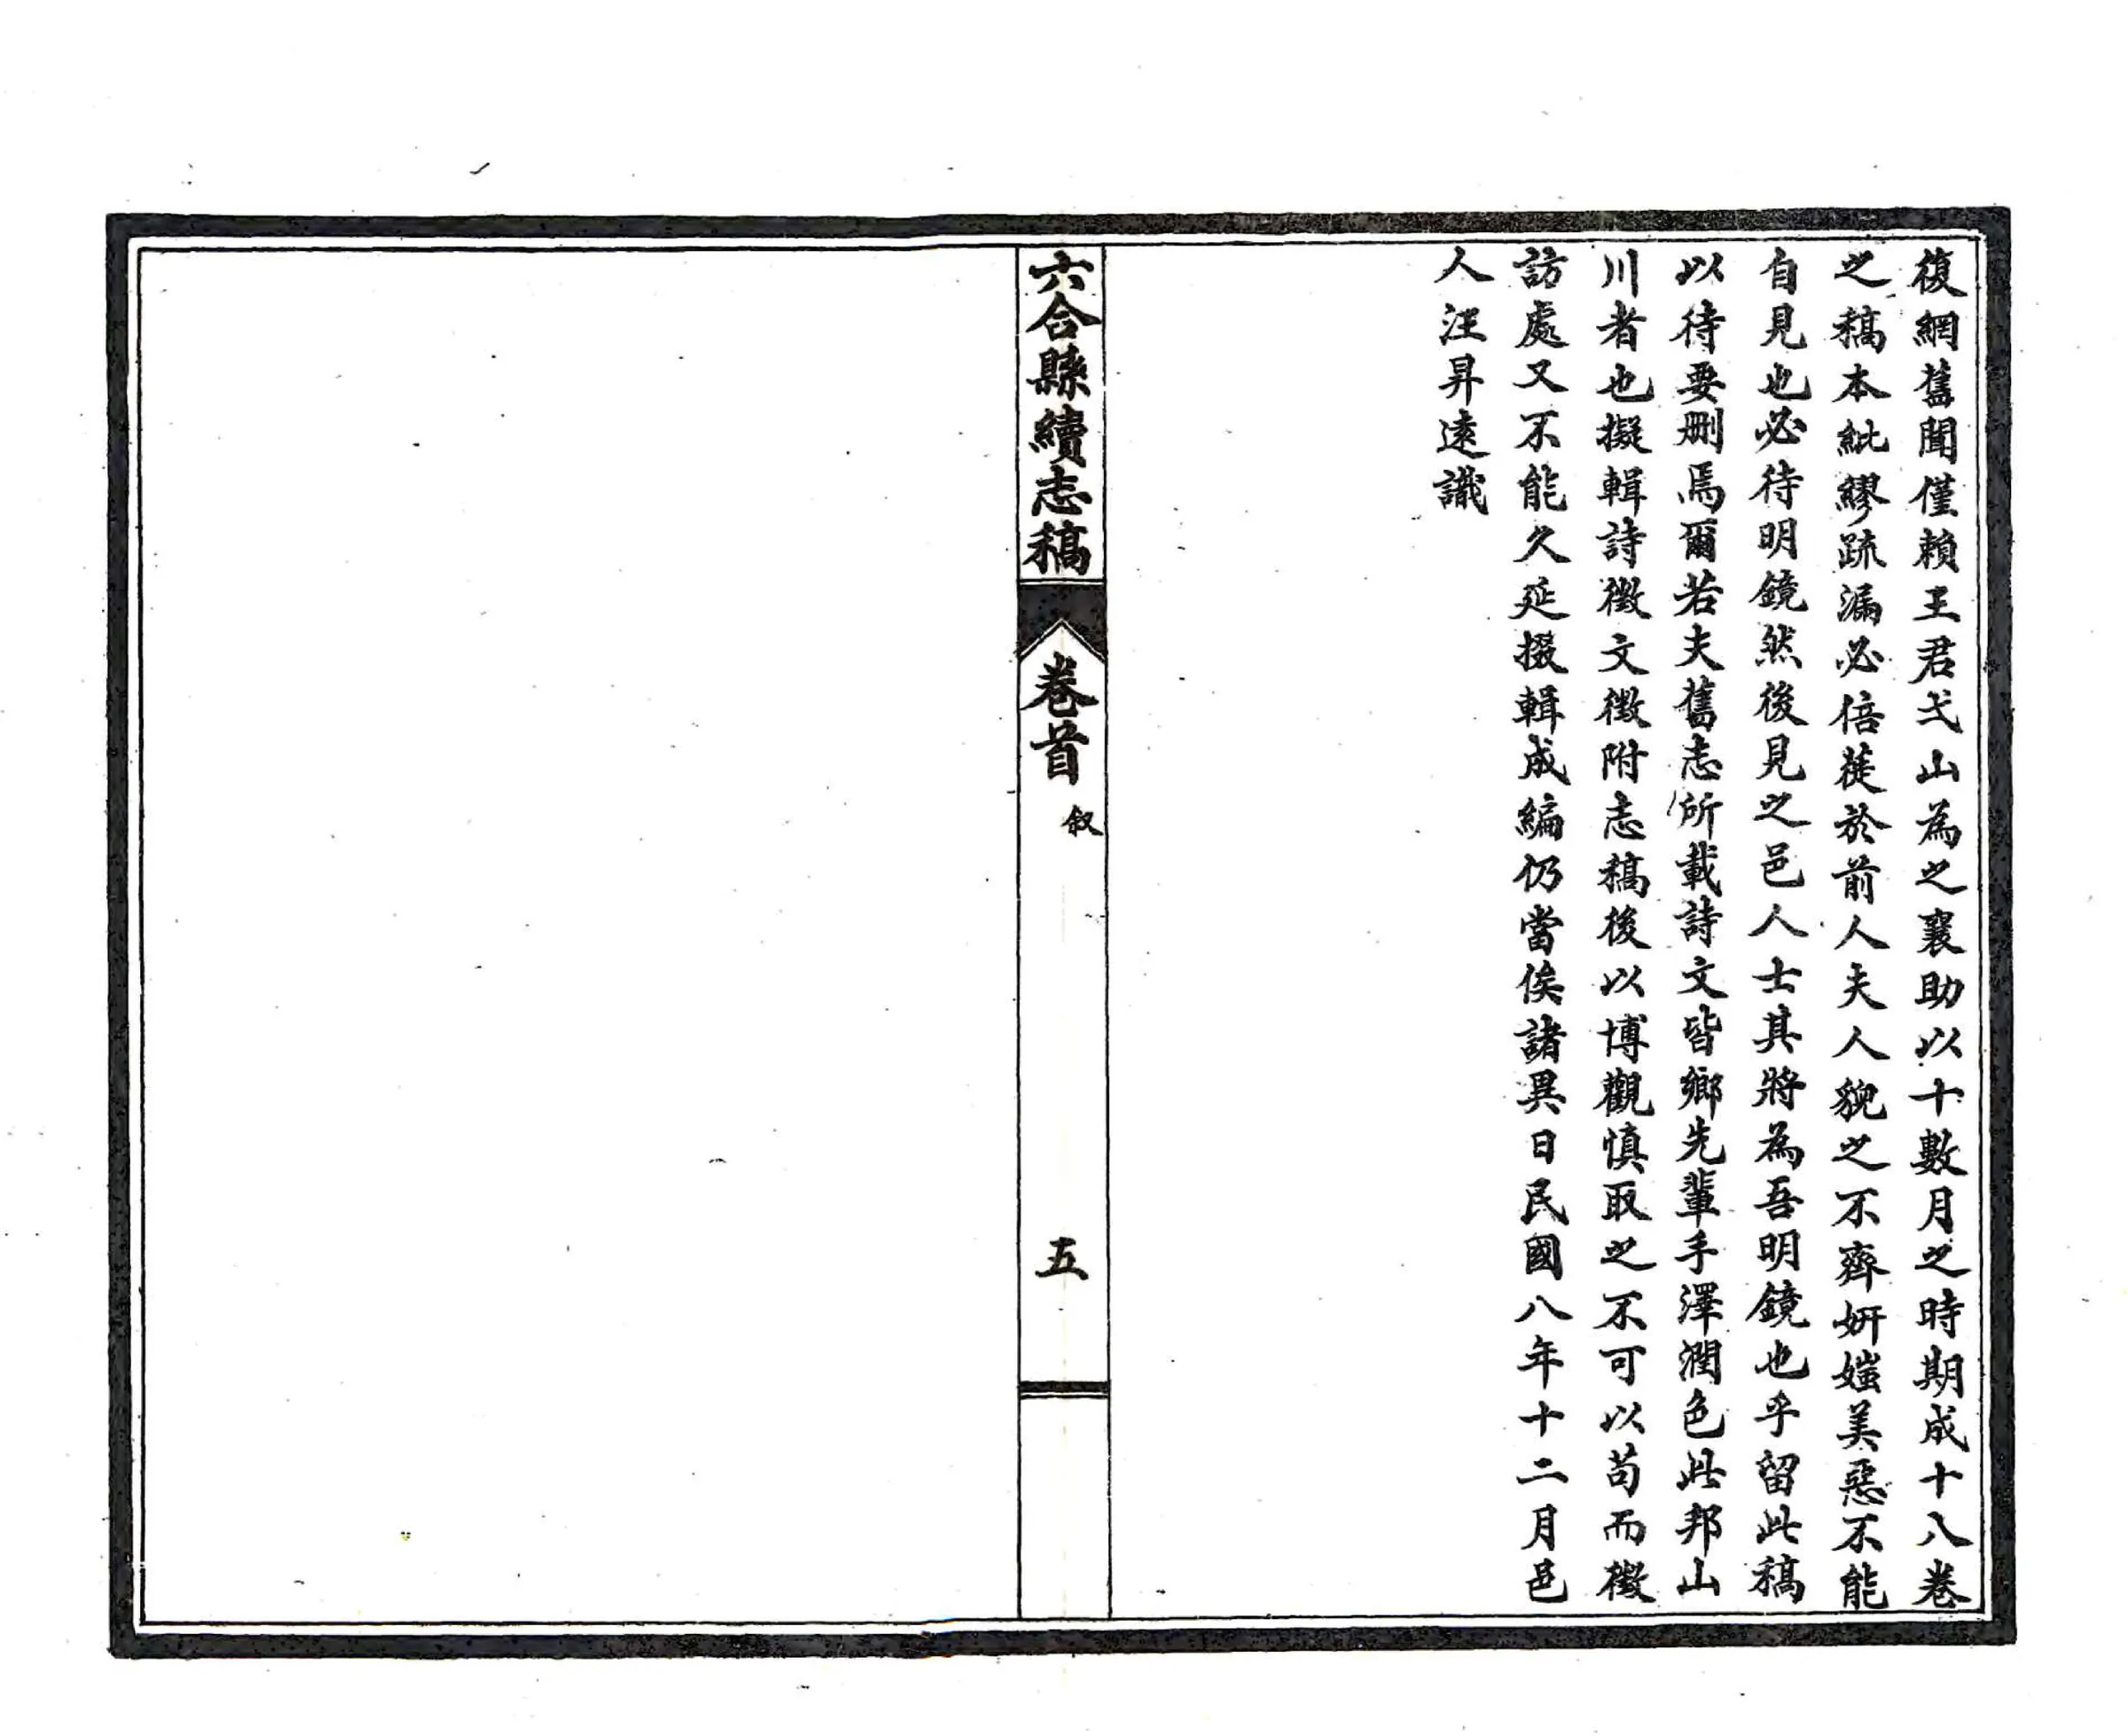 復網舊聞僅賴王君弌山為之襄助以十數月之時期成十八卷
之稿本紕繆疏漏必倍蓰於前人夫人貌之不齊妍媸美惡不能
自見也必待明鏡然後見之邑人士其將為吾明鏡也乎留此稿
以待要刪焉爾若夫舊志所載詩文皆鄉先輩手澤潤色此邦山
川者也擬輯詩徵文徵附志稿後以博觀慎取之不可以苟而徵
訪處又不能久延掇輯成編仍當俟諸異日民國八年十二月邑
人汪昇遠識
六合縣續志稿
卷首
叙
五